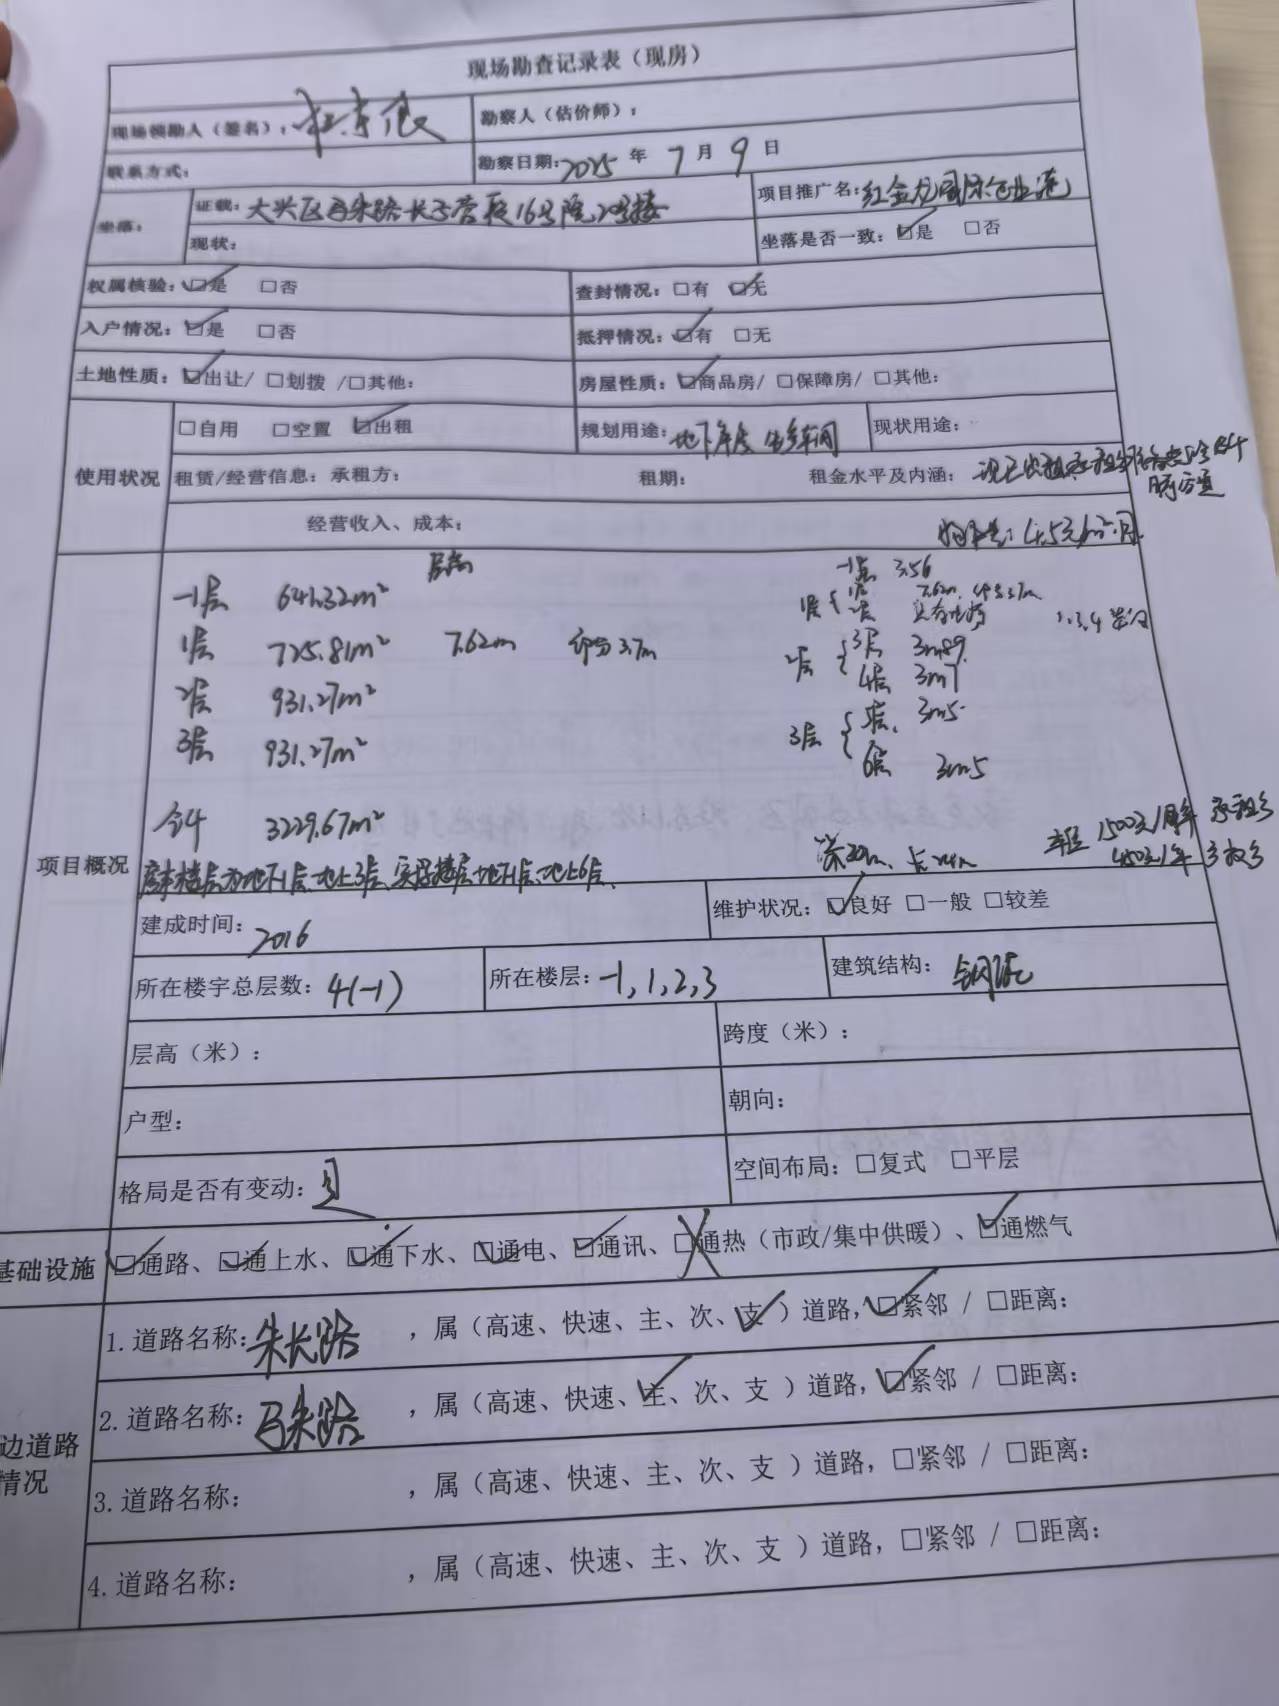 现场勘查记录表（现房）
现场领勘人（签名）：
勘察人（估价师）：
联系方式：
勘察日期：2025 年 7 月 9 日
坐落：
证载：大兴区马朱路长子营段16号院20号楼
项目推广名：红金龙国际企业港
现状：
坐落是否一致：☑是 □否
权属核验：☑是 □否
查封情况：□有 ☑无
入户情况：☑是 □否
抵押情况：☑有 □无
土地性质：☑出让/ □划拨 /□其他：
房屋性质：☑商品房/ □保障房/ □其他：
使用状况
□自用 □空置 ☑出租
规划用途：地下库房 生产车间
现状用途：
租赁/经营信息：承租方： 租期： 租金水平及内涵：现已出租
经营收入、成本： 4.5元/m²·月
项目概况
层高
-1层 641.32m²
1层 725.81m² 7.62m 部分3.7m
2层 931.27m²
3层 931.27m²
合计 3229.67m²
-1层 3.56
1层 { 1层 7.62m
2层
2层 { 3层 3m89
4层 3m7
3层 { 5层 3m5
6层 3m5
车位 1500元/月
450元/年
房本楼层为地下1层、地上3层、实际楼层地下1层、地上6层、
建成时间：2016
维护状况：☑良好 □一般 □较差
所在楼宇总层数：4(-1)
所在楼层：-1,1,2,3
建筑结构：钢混
层高（米）：
跨度（米）：
户型：
朝向：
格局是否有变动：是
空间布局：□复式 □平层
基础设施
☑通路、☑通上水、☑通下水、☑通电、☑通讯、☒通热（市政/集中供暖）、☑通燃气
边道路
情况
1.道路名称：朱长路 ，属（高速、快速、主、次、支✓）道路，☑紧邻 / □距离：
2.道路名称：马朱路 ，属（高速、快速、主✓、次、支 ）道路，☑紧邻 / □距离：
3.道路名称： ，属（高速、快速、主、次、支 ）道路，□紧邻 / □距离：
4.道路名称： ，属（高速、快速、主、次、支 ）道路，□紧邻 / □距离：